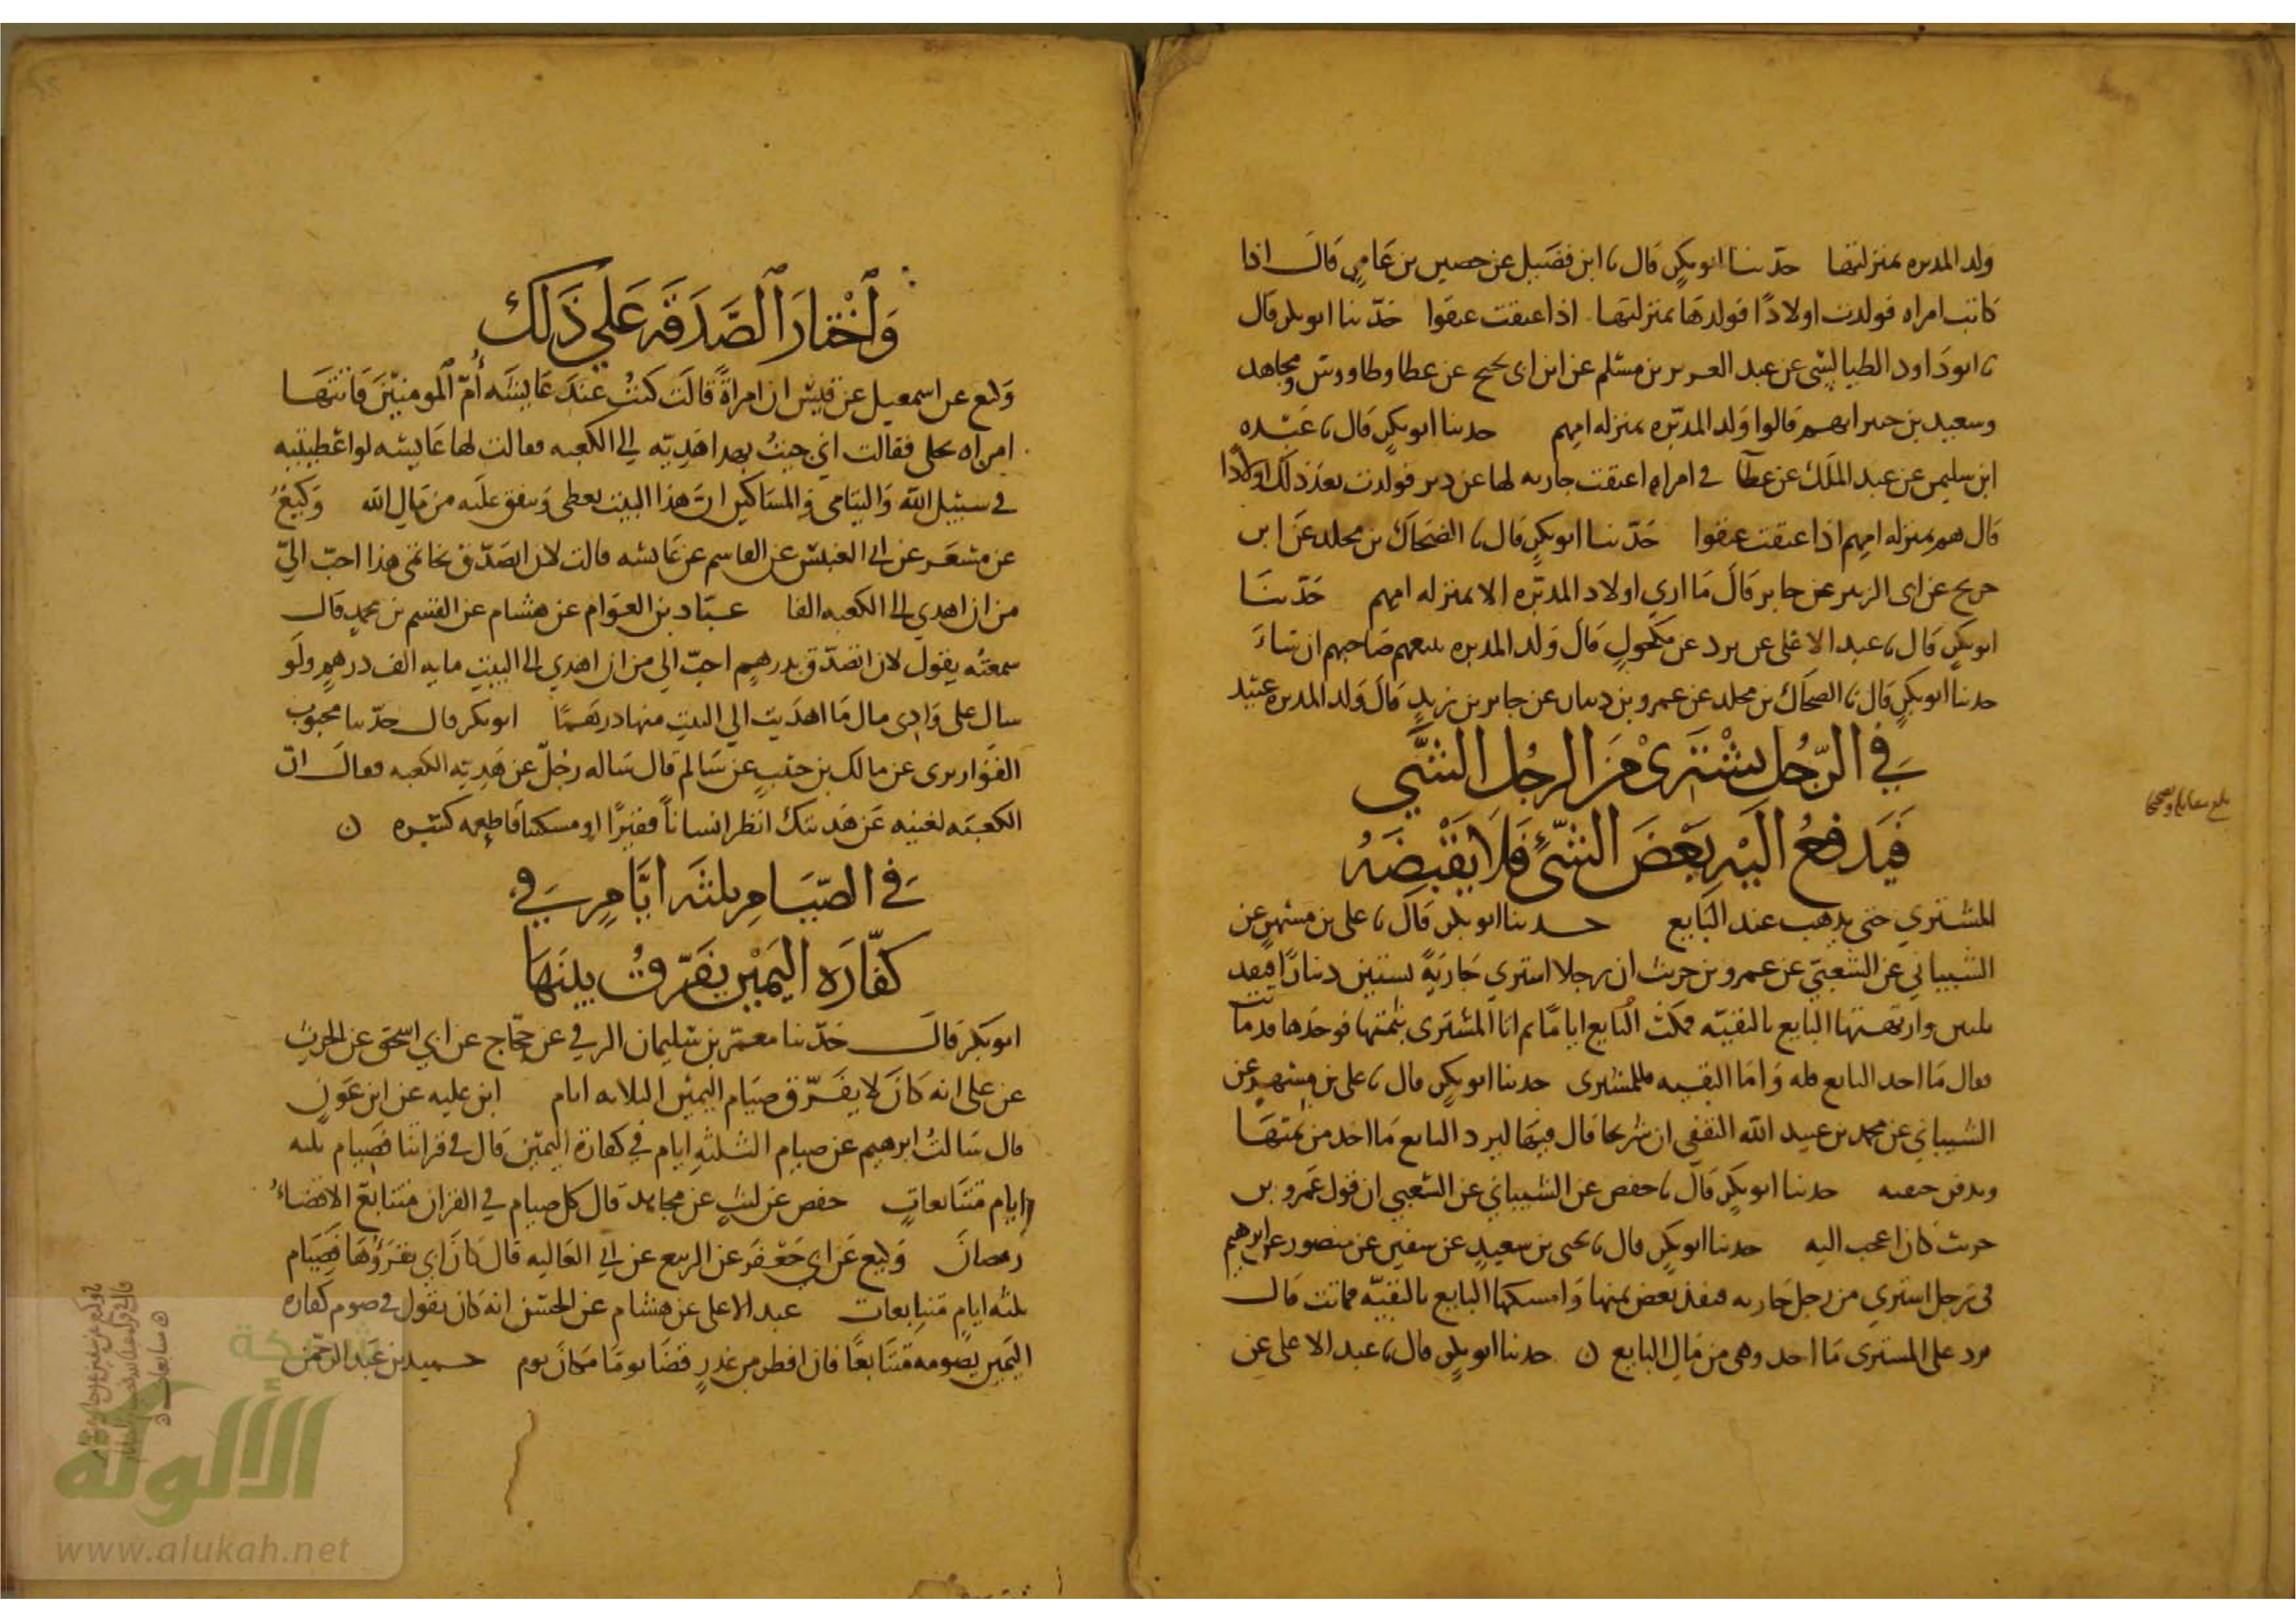 ولد المدبره بمنزلتها حدثنا ابو بكر قال نا ابن فضيل عن حصين بن عامر قال اذا
كاتب امراه فولدت اولادا فولدها بمنزلتها اذا عتقت عتقوا حدثنا ابو بكر قال
نا ابو داود الطيالسي عن عبد العزيز بن مسلم عن ابن ابي نجيح عن عطا وطاووس ومجاهد
وسعيد بن جبير قالوا ولد المدبره بمنزله امهم حدثنا ابو بكر قال نا عبده
ابن سليمن عن عبد الملك عن عطا في امراه اعتقت جاريه لها عن دبر فولدت بعد ذلك اولادا
قال هم بمنزله امهم اذا عتقت عتقوا حدثنا ابو بكر قال نا الضحاك بن مخلد عن ابن
جريج عن ابي الزبير عن جابر قال ما اري اولاد المدبره الا بمنزله امهم حدثنا
ابو بكر قال نا عبد الاعلى عن برد عن مكحول قال ولد المدبره يبيعهم صاحبهم ان شاء
حدثنا ابو بكر قال نا الضحاك بن مخلد عن عمرو بن دينار عن جابر بن زيد قال ولد المدبره عبيد
في الرجل يشتري من الرجل الشي
فيدفع اليه بعض الشيء فلا يقبضه
المشتري حتى يذهب عند البايع حدثنا ابو بكر قال نا علي بن مسهر عن
الشيباني عن الشعبي عن عمرو بن حريث ان رجلا اشتري جارية بستين دينارا فنقد
ثلثين وارتهنها البايع بالبقيه فمكث البايع اياما ثم اتا المشترى بثمنها فوجدها قد ماتت
فقال ما اخذ البايع فله واما البقيه فللمشترى حدثنا ابو بكر قال نا علي بن مسهر عن
الشيباني عن محمد بن عبيد الله الثقفي ان شريحا قال فيها ليرد البايع ما اخذ من ثمنها
ويدفن جيفته حدثنا ابو بكر قال نا حفص عن الشيباني عن الشعبي ان قول عمرو بن
حريث كان اعجب اليه حدثنا ابو بكر قال نا يحيى بن سعيد عن سفين عن منصور عن ابرهيم
في رجل اشتري من رجل جاريه فنقد بعض ثمنها وامسكها البايع بالبقيه فماتت قال
يرد على المشترى ما اخذ وهى من مال البايع حدثنا ابو بكر قال نا عبد الاعلى عن
واختار الصدقه علي ذلك
وكيع عن اسمعيل عن قيس ان امراة قالت كنت عند عايشه ام المومنين فاتتها
امراه بحلى فقالت اني جيت بهذا هديه الي الكعبه فقالت لها عايشه لو اعطيتيه
في سبيل الله واليتامى والمساكين ان هذا البيت يعطى وينفق عليه من مال الله وكيع
عن مسعر عن ابي العنبس عن القاسم عن عايشه قالت لان اتصدق بخاتمي هذا احب الي
من ان اهدي الى الكعبه الفا عباد بن العوام عن هشام عن القسم بن محمد قال
سمعته يقول لان اتصدق بدرهم احب الي من ان اهدي الى البيت مايه الف درهم ولو
سال علي وادى مال ما اهديت الي البيت منها درهما ابو بكر قال حدثنا محبوب
القواريرى عن مالك بن حبيب عن سالم قال ساله رجل عن هديه الكعبه فقال ان
الكعبه لغنيه عن هديتك انظر انسانا فقيرا او مسكينا فاطعمه كسره
في الصيام ثلثه ايام في
كفاره اليمين يفرق بينها
ابو بكر قال حدثنا معمر بن سليمان الرقي عن حجاج عن ابي اسحق عن الحرث
عن علي انه كان لا يفرق صيام اليمين الثلاثه ايام ابن عليه عن ابن عون
قال سالت ابرهيم عن صيام الثلثه ايام في كفارة اليمين قال في قراتنا فصيام ثلثه
ايام متتابعات حفص عن ليث عن مجاهد قال كل صيام في القران متتابع الا قضاء
رمضان وكيع عن ابي جعفر عن الربيع عن ابي العاليه قال كان ابي يقرؤها فصيام
ثلثه ايام متتابعات عبد الاعلى عن هشام عن الحسن انه كان يقول في صوم كفاره
اليمين يصومه متتابعا فان افطر من عذر قضا يوما مكان يوم حميد بن عبد الرحمن
شبكة
الألوكة
www.alukah.net